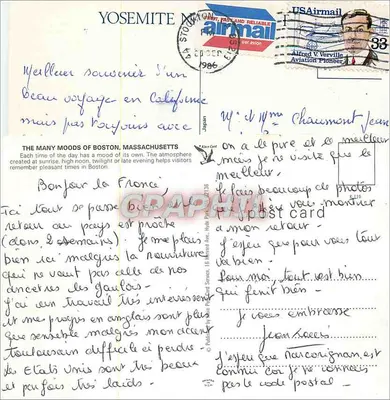 YOSEMITE N
SAN STOCKTON
1986
FAST AND RELIABLE
airmail
par avion
USAirmail
33
Alfred V. Verville
Aviation Pioneer
Meilleur souvenir d'un
beau voyage en Californie
mais pas toujours avec
Japan
M. et Mme Chaumont Jean
THE MANY MOODS OF BOSTON, MASSACHUSETTS
Each time of the day has a mood of its own. The atmosphere
created at sunrise, high noon, twilight or late evening helps visitors
remember pleasant times in Boston.
Bonjour la France,
Ici tout se passe bien, le
retour au pays est proche
(dans 2 semaines). Je me plais
bien ici malgré la nourriture
qui ne vaut pas celle de nos
ancêtres les Gaulois.
J'ai un travail très intéressant
et mes progrès en anglais sont plus
que sensible malgré mon accent
toulousain difficile à perdre.
Les Etats Unis sont très beaux
et parfois très laids.
on a le pire et le meilleur
mais je ne visite que le
meilleur.
Je fais beaucoup de photos
pour vous montrer
a mon retour.
J'espère que pour vous tout
va bien.
Pour moi, tout est bien
qui finit bien.
Je vous embrasse
Jean Louis
J'espère que Marcorignan est
connu car je ne connais
pas le code postal.
post card